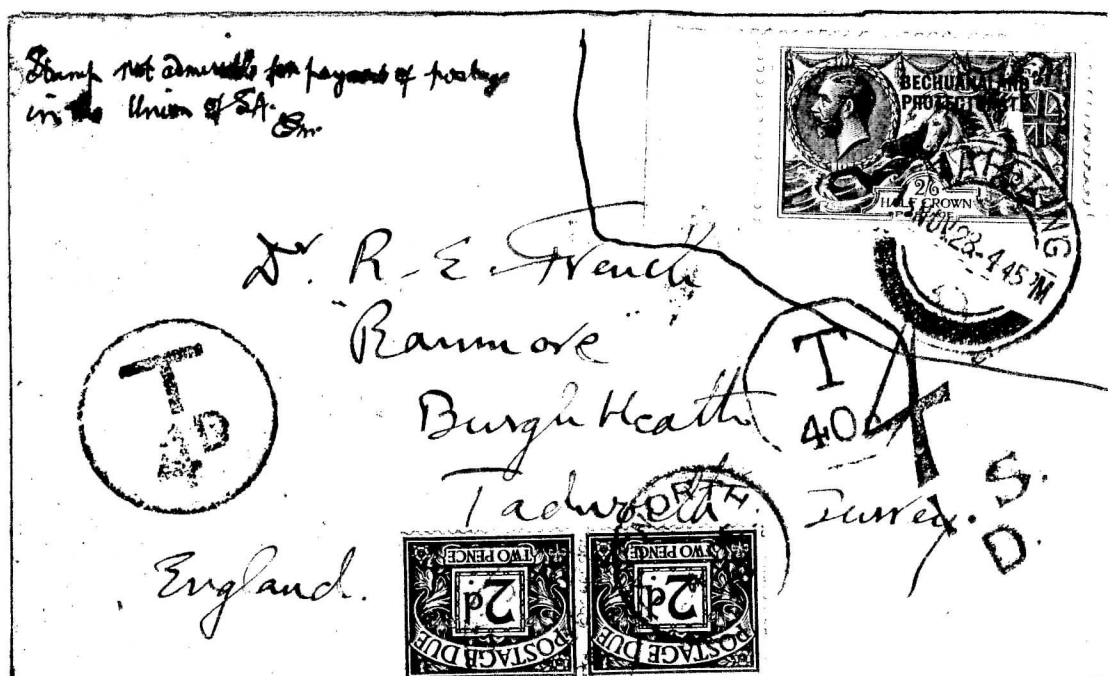 Stamp not admissible for payment of postage
in the Union of SA.
BECHUANALAND
PROTECTORATE
2/6
HALF CROWN
POSTAGE
MAFEKING
NOV 28 - 4 45 PM
Dr. R. E. French
"Ranmore"
Burgh Heath
Tadworth. Surrey.
England.
T
4D
T
40c
T
S.
D.
TWO PENCE
2d.
POSTAGE DUE
TWO PENCE
2d.
POSTAGE DUE